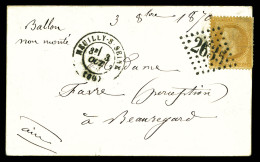 3 8bre 1870
Ballon
non monté
NEUILLY-S-SEINE
3
OCT
(60)
Madame
Favre (perception)
à Beauregard
Ain